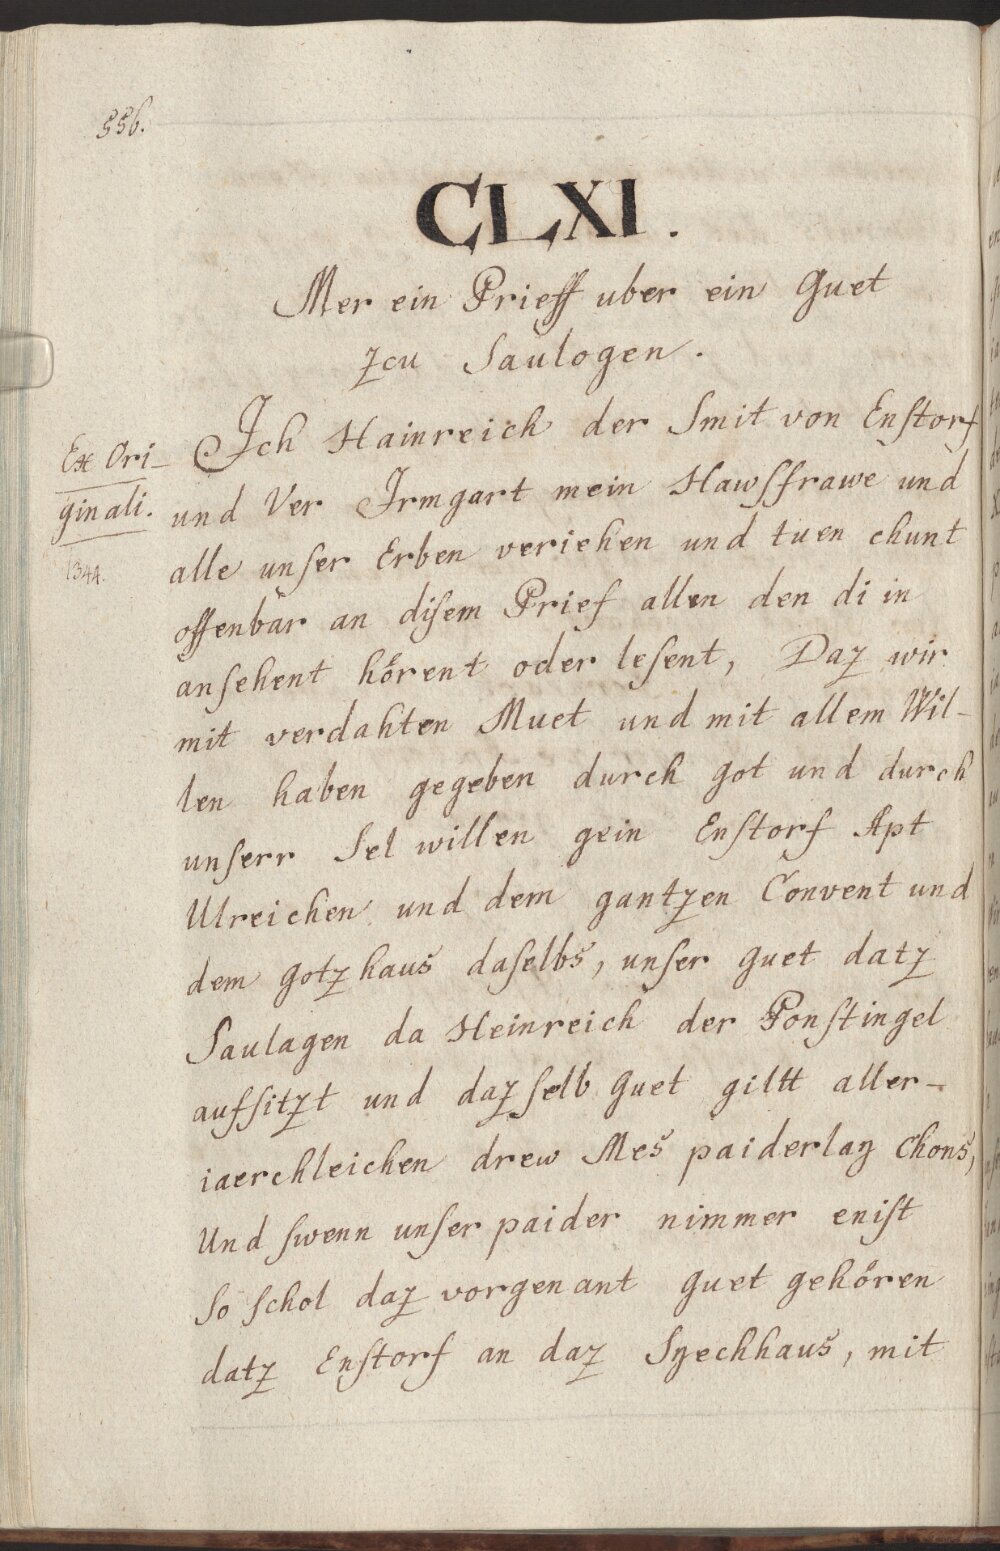 556.
CLXI.
Mer ein Prieff uber ein Guet
zcu Saulogen.
Ex Ori-
ginali.
1344.
Ich Hainreich der Smit von Enstorf
und Ver Irmgart mein Hawsfrawe und
alle unser Erben veriehen und tuen chunt
offenbär an disem Prief allen den di in
ansehent hörent oder lesent, Daz wir
mit verdahten Muet und mit allem Wil-
len haben gegeben durch got und durch
unserr Sel willen gein Enstorf Apt
Ulreichen und dem gantzen Convent und
dem gotzhaus daselbs, unser guet datz
Saulagen da Heinreich der Ponstingel
aufsitzt und daz selb Guet giltt aller-
iaerchleichen drew Mes paiderlaÿ Chons,
Und swenn unser paider nimmer enist
So schol daz vorgenant Guet gehören
datz Enstorf an daz Syechhaus, mit